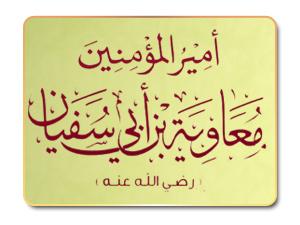 أَمِيرُ المُؤْمِنِينَ
مُعَاوِيَة بْن أَبِي سُفْيَان
( رضي الله عنه )